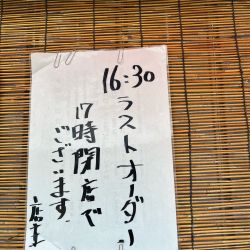 16:30
ラストオーダー
17時閉店で
ございます
店主